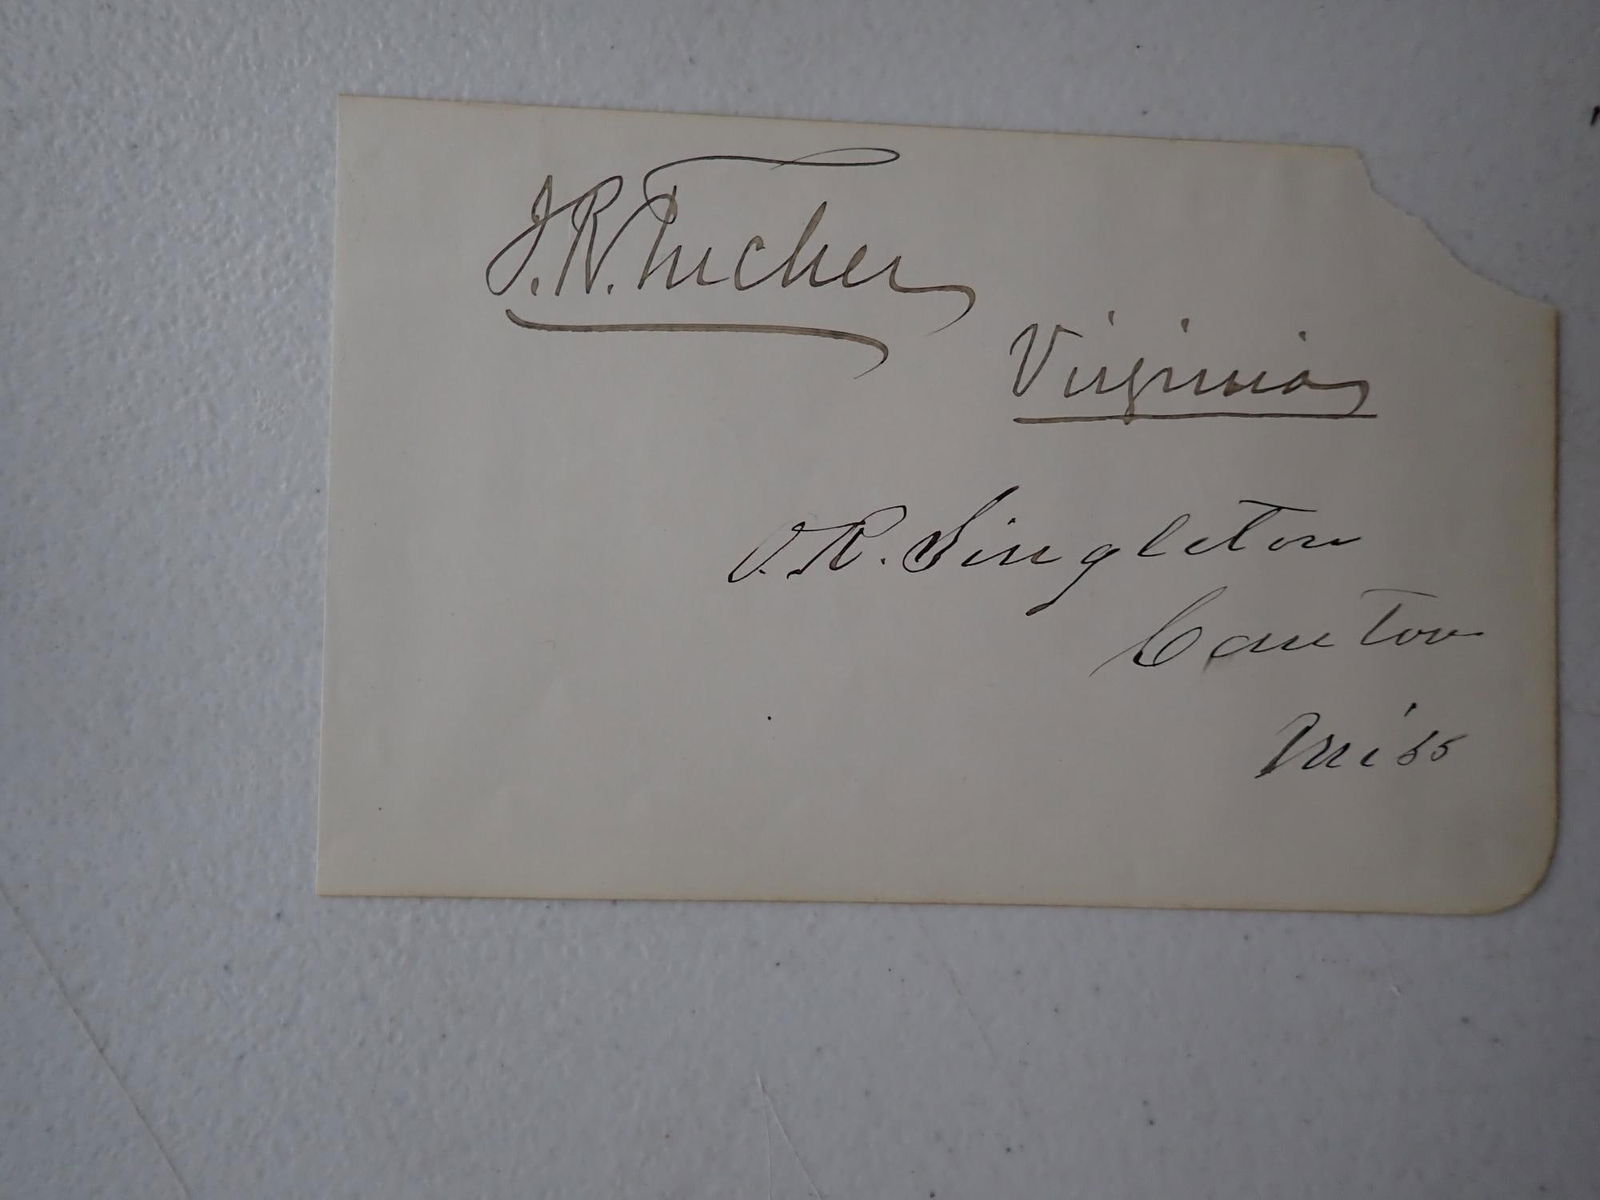 J. R. Tucker
Virginia
O. R. Singleton
Canton
Miss